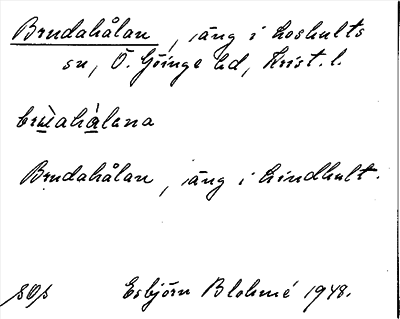 Brudahålan, äng i Loshults
sn, Ö. Göinge hd, Krist. l.
brùahàlana
Brudahålan, äng i Lindhult.
Esbjörn Blohmé 1948.